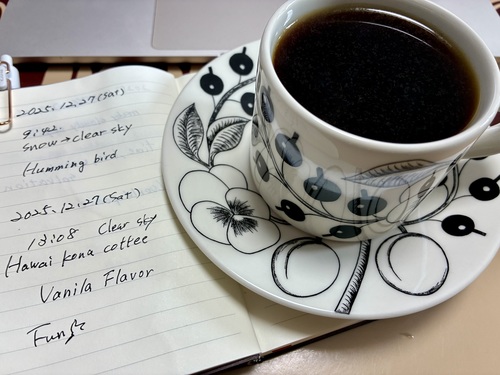 2025.12.27(Sat)
9:42.
snow→clear sky
Humming bird
2025.12.27(Sat)
13:08 Clear sky
Hawai kona coffee
Vanila Flavor